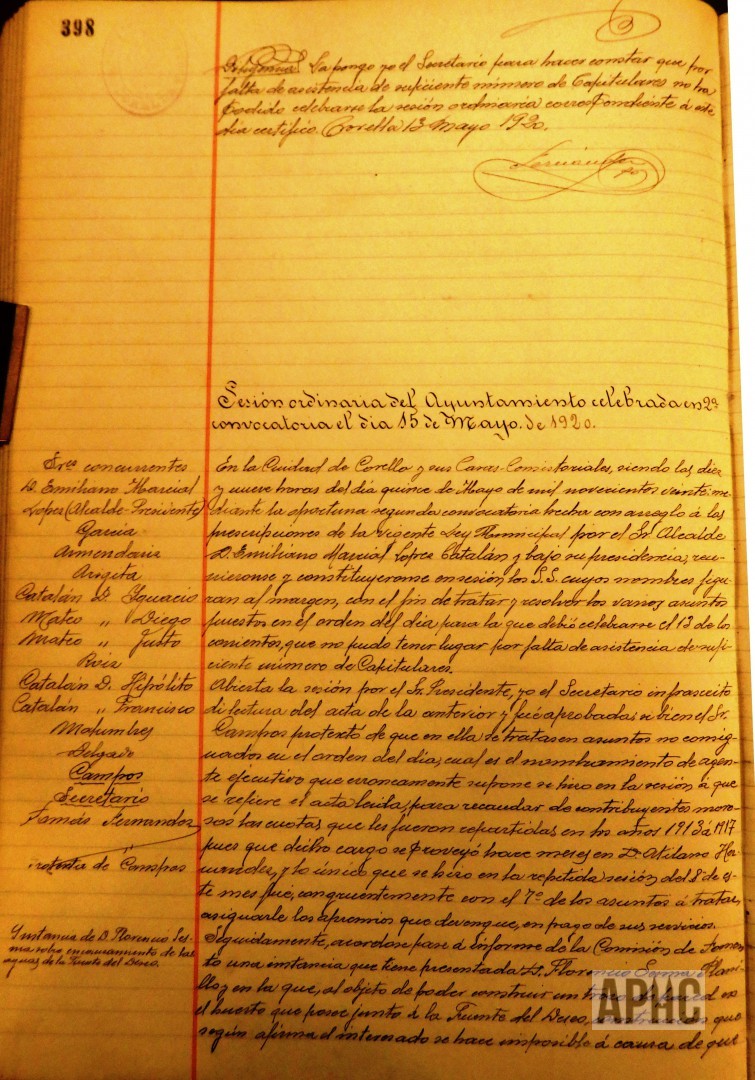 398
Diligencia. La pongo yo el Secretario para hacer constar que por
falta de asistencia de suficiente número de Capitulares no ha
podido celebrarse la sesión ordinaria correspondiente á este
día certifico. Corella 13 Mayo 1920.
Sesión ordinaria del Ayuntamiento celebrada en 2ª
convocatoria el dia 15 de Mayo de 1920.
Sres. concurrentes
D. Emiliano Marcial
Lopez (Alcalde-Presidente)
Garcia
Armendariz
Catalán D. Ignacio
Mateo „ Diego
Mateo „ Justo
Catalán D. Hipólito
Catalán „ Francisco
Malumbres
Delgado
Campos
Secretario
Tomás Fernandez
Protesta de Campos
Instancia de D. Florencio Ses-
ma sobre encauzamiento de las
aguas de la Fuente del Deseo.
En la Ciudad de Corella y sus Casas-Consistoriales, siendo las diez
y nueve horas del día quince de Mayo de mil novecientos veinte: me-
diante la oportuna segunda convocatoria hecha con arreglo á las
prescripciones de la vigente Ley Municipal por el Sr. Alcalde
D. Emiliano Marcial Lopez Catalán y bajo su presidencia, reu-
nieronse y constituyeronse en sesión los S.S. cuyos nombres figu-
ran al margen, con el fin de tratar y resolver los varios asuntos
puestos en el orden del día para la que debió celebrarse el 13 de los
corrientes, que no pudo tener lugar por falta de asistencia de sufi-
ciente número de Capitulares.
Abierta la sesión por el Sr. Presidente, yo el Secretario infrascrito
di lectura del acta de la anterior y fué aprobada; si bien el Sr.
Campos protestó de que en ella se tratasen asuntos no consig-
nados en el orden del día, cual es el nombramiento de agen-
te ejecutivo que erroneamente supone se hizo en la sesión á que
se refiere el acta leida, para recaudar de contribuyentes moro-
sos las cuotas que les fueron repartidas en los años 1913 á 1917
pues que dicho cargo se proveyó hace meses en D. Atilano Her-
nandez, y lo único que se hizo en la repetida sesión del 8 de es-
te mes fué, congruentemente con el 7º de los asuntos á tratar,
asignarle los apremios que devengue, en pago de sus servicios.
Seguidamente, acordose pase á informe de la Comisión de Fomen-
to una instancia que tiene presentada D. Florencio Sesma
llo, en la que, al objeto de poder construir un trozo de pared en
el huerto que posee junto á la Fuente del Deseo, construcción que
según afirma el interesado se hace imposible á causa de que
APHC